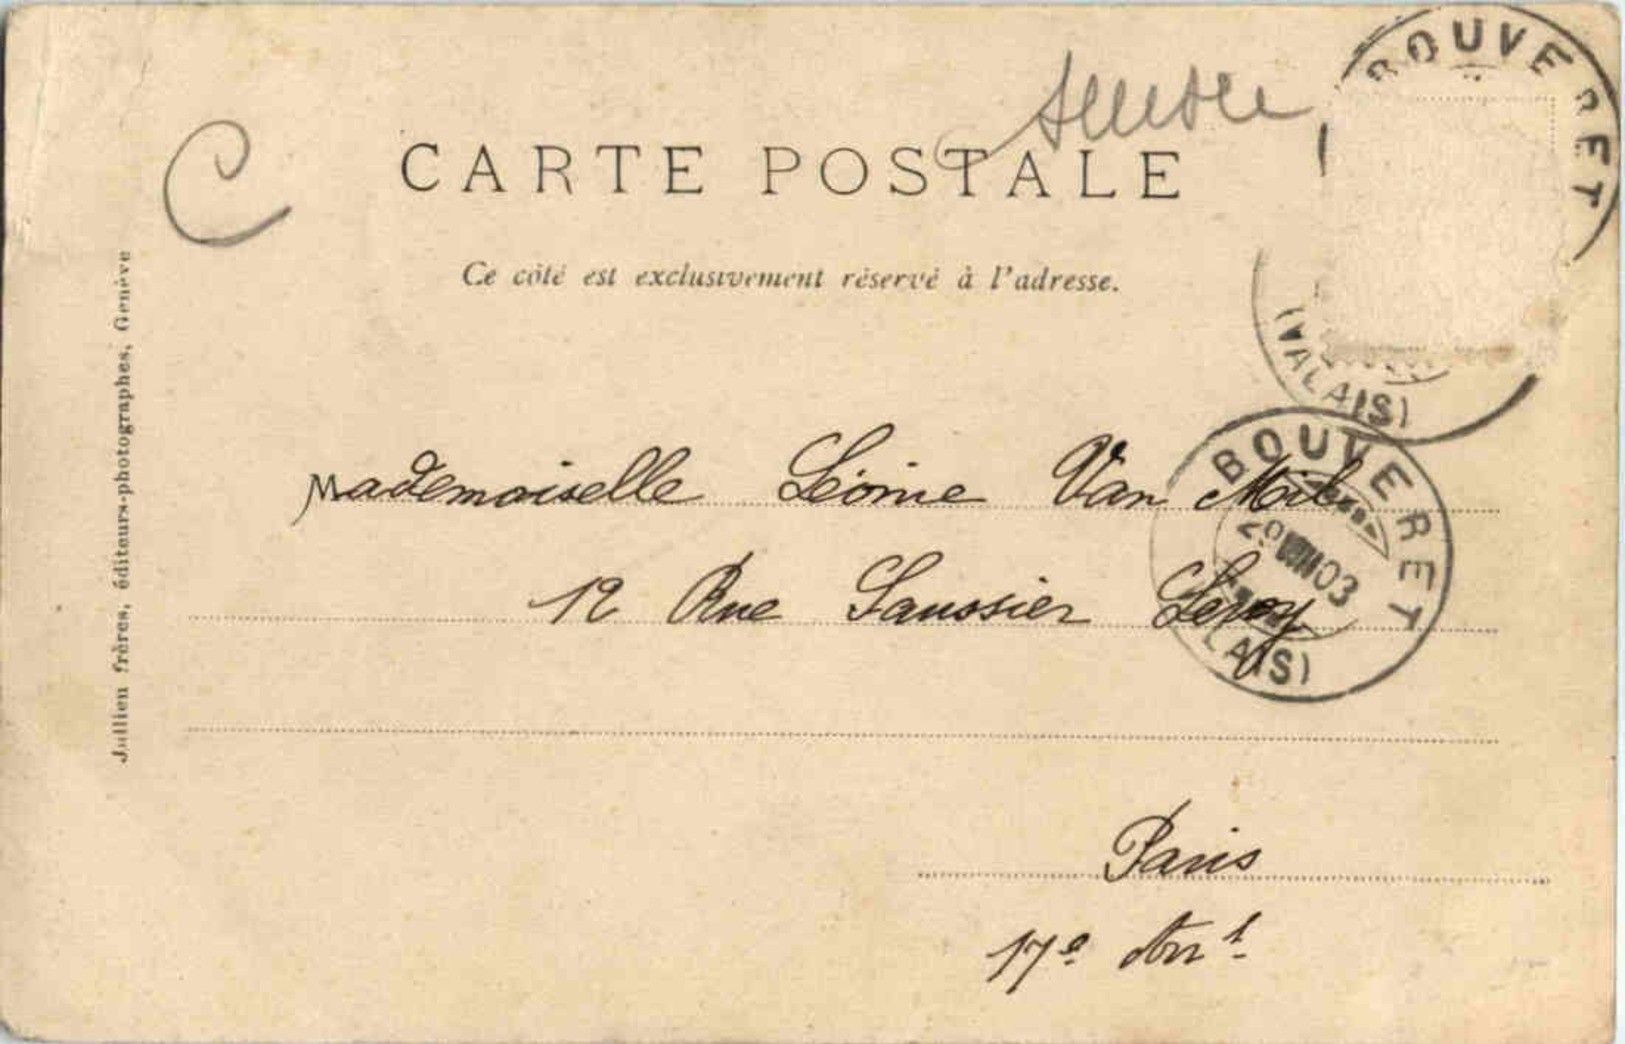 BOUVERET
(VALAIS)
C
CARTE POSTALE
Ce côté est exclusivement réservé à l'adresse.
Jullien frères, éditeurs-photographes, Genève
Mademoiselle Léonie Van Mol
BOUVERET
29 VIII 03
LAIS)
12 Rue Saussier Leroy
Paris
17e Arrt